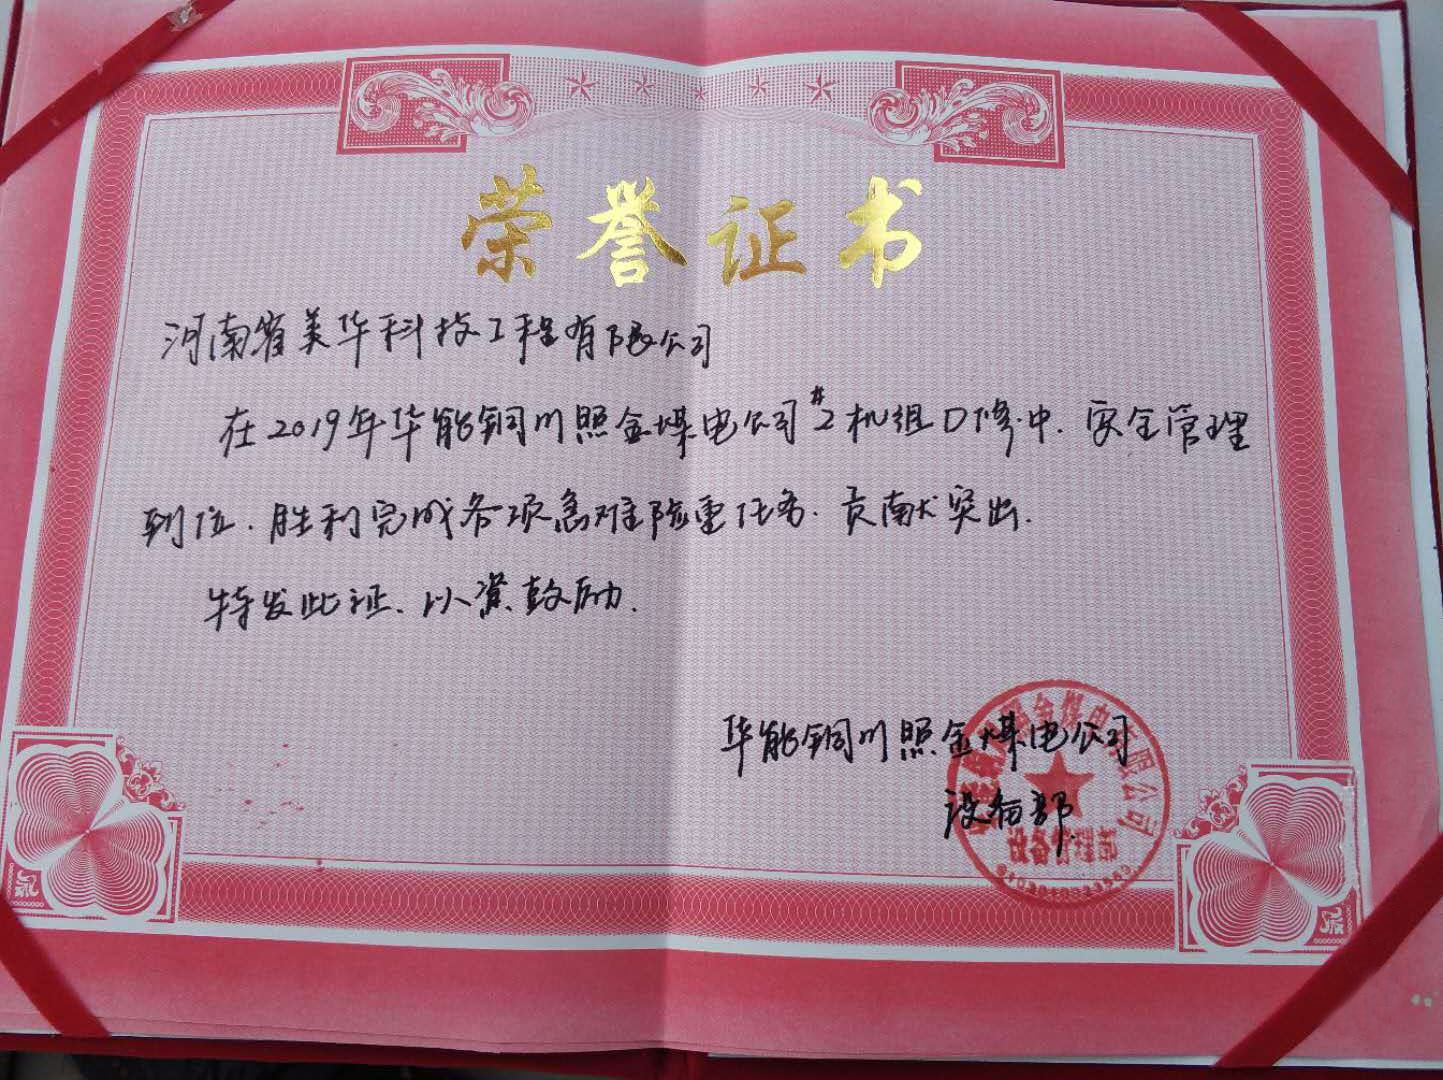 荣誉证书
河南省美华科技工程有限公司
在2019年华能铜川照金煤电公司#2机组D修中、安全管理
到位、胜利完成各项急难险重任务、贡献突出.
特发此证、以资鼓励.
华能铜川照金煤电公司
设备部
金煤电有限公司
设备管理部